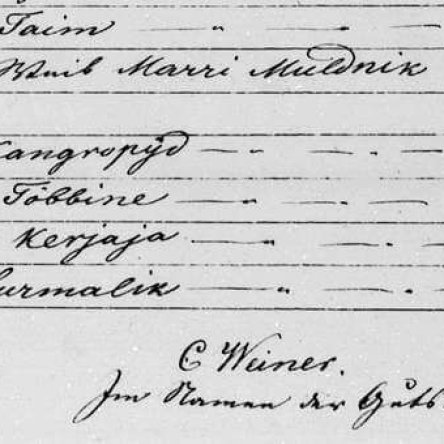 Taim — " — . —
Weib Marri Muldnik
Kangropýd — " — . —
Többine — " — . —
Kerjaja — " — . —
urmalik — " — . —
C Weiner.
Im Namen der Guts